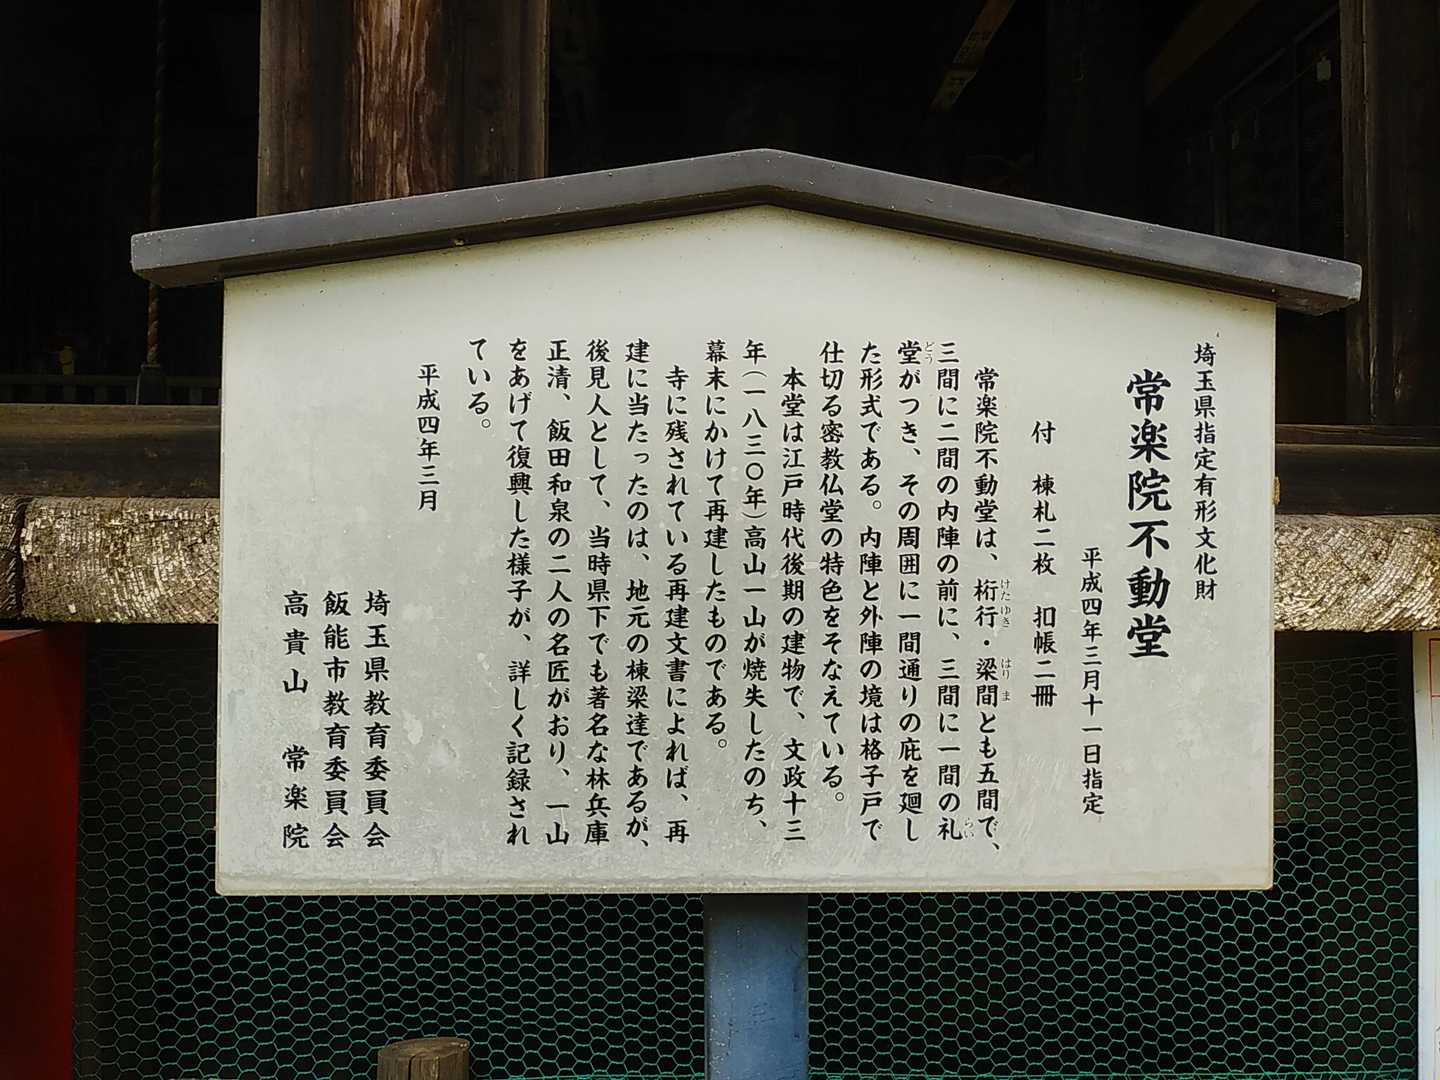 埼玉県指定有形文化財
常楽院不動堂
平成四年三月十一日指定
付　棟札二枚　扣帳二冊
常楽院不動堂は、桁行・梁間とも五間で、
けたゆき　はりま
三間に二間の内陣の前に、三間に一間の礼
らい
堂がつき、その周囲に一間通りの庇を廻し
どう
た形式である。内陣と外陣の境は格子戸で
仕切る密教仏堂の特色をそなえている。
本堂は江戸時代後期の建物で、文政十三
年（一八三〇年）高山一山が焼失したのち、
幕末にかけて再建したものである。
寺に残されている再建文書によれば、再
建に当たったのは、地元の棟梁達であるが、
後見人として、当時県下でも著名な林兵庫
正清、飯田和泉の二人の名匠がおり、一山
をあげて復興した様子が、詳しく記録され
ている。
平成四年三月
埼玉県教育委員会
飯能市教育委員会
高貴山　常楽院